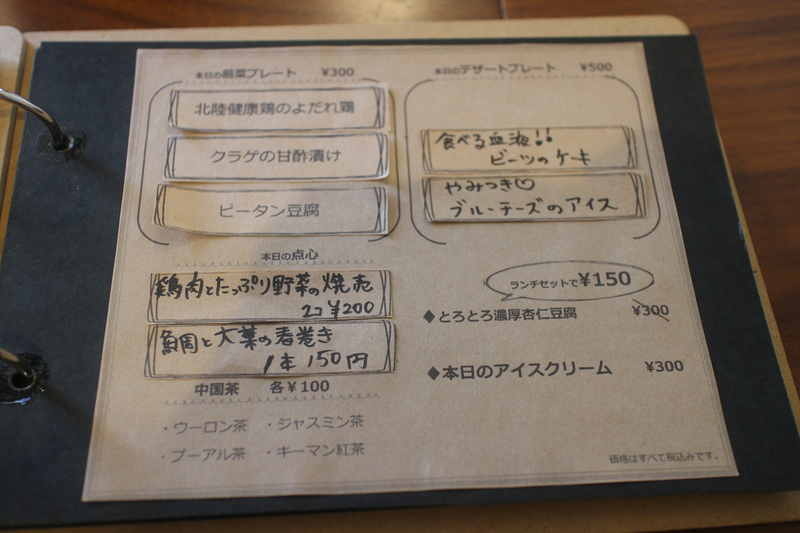 本日の前菜プレート ¥300
北陸健康鶏のよだれ鶏
クラゲの甘酢漬け
ピータン豆腐
本日の点心
鶏肉とたっぷり野菜の焼売
2コ ¥200
鯛と大葉の春巻き
1本 150円
中国茶 各¥100
・ウーロン茶 ・ジャスミン茶
・プーアル茶 ・キーマン紅茶
本日のデザートプレート ¥500
食べる血液!!
ビーツのケーキ
やみつき♡
ブルーチーズのアイス
ランチセットで¥150
◆とろとろ濃厚杏仁豆腐 ¥300
◆本日のアイスクリーム ¥300
価格はすべて税込みです。